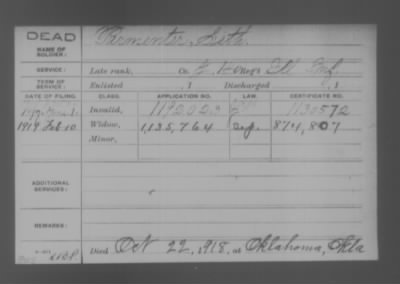 DEAD
NAME OF SOLDIER:
Parmenter, Seth.
SERVICE:
Late rank, Co. Reg't Ill Inf.
TERM OF SERVICE:
Enlisted , 1 Discharged , 1
DATE OF FILING. CLASS. APPLICATION NO. LAW. CERTIFICATE NO.
Invalid, 1130572
1919 Feb 10 Widow, 1,135,764 874,807
Minor,
ADDITIONAL SERVICES:
REMARKS:
Died Oct 22, 1918, at Oklahoma, Okla